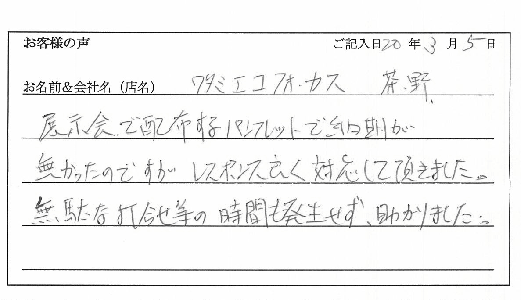 お客様の声 ご記入日20年3月5日
お名前&会社名（店名） ワタミエコフォーカス 茶野
展示会で配布するパンフレットで納期が
無かったのですが レスポンス良く対応して頂きました。
無駄な打合せ等の時間も発生せず、助かりました。